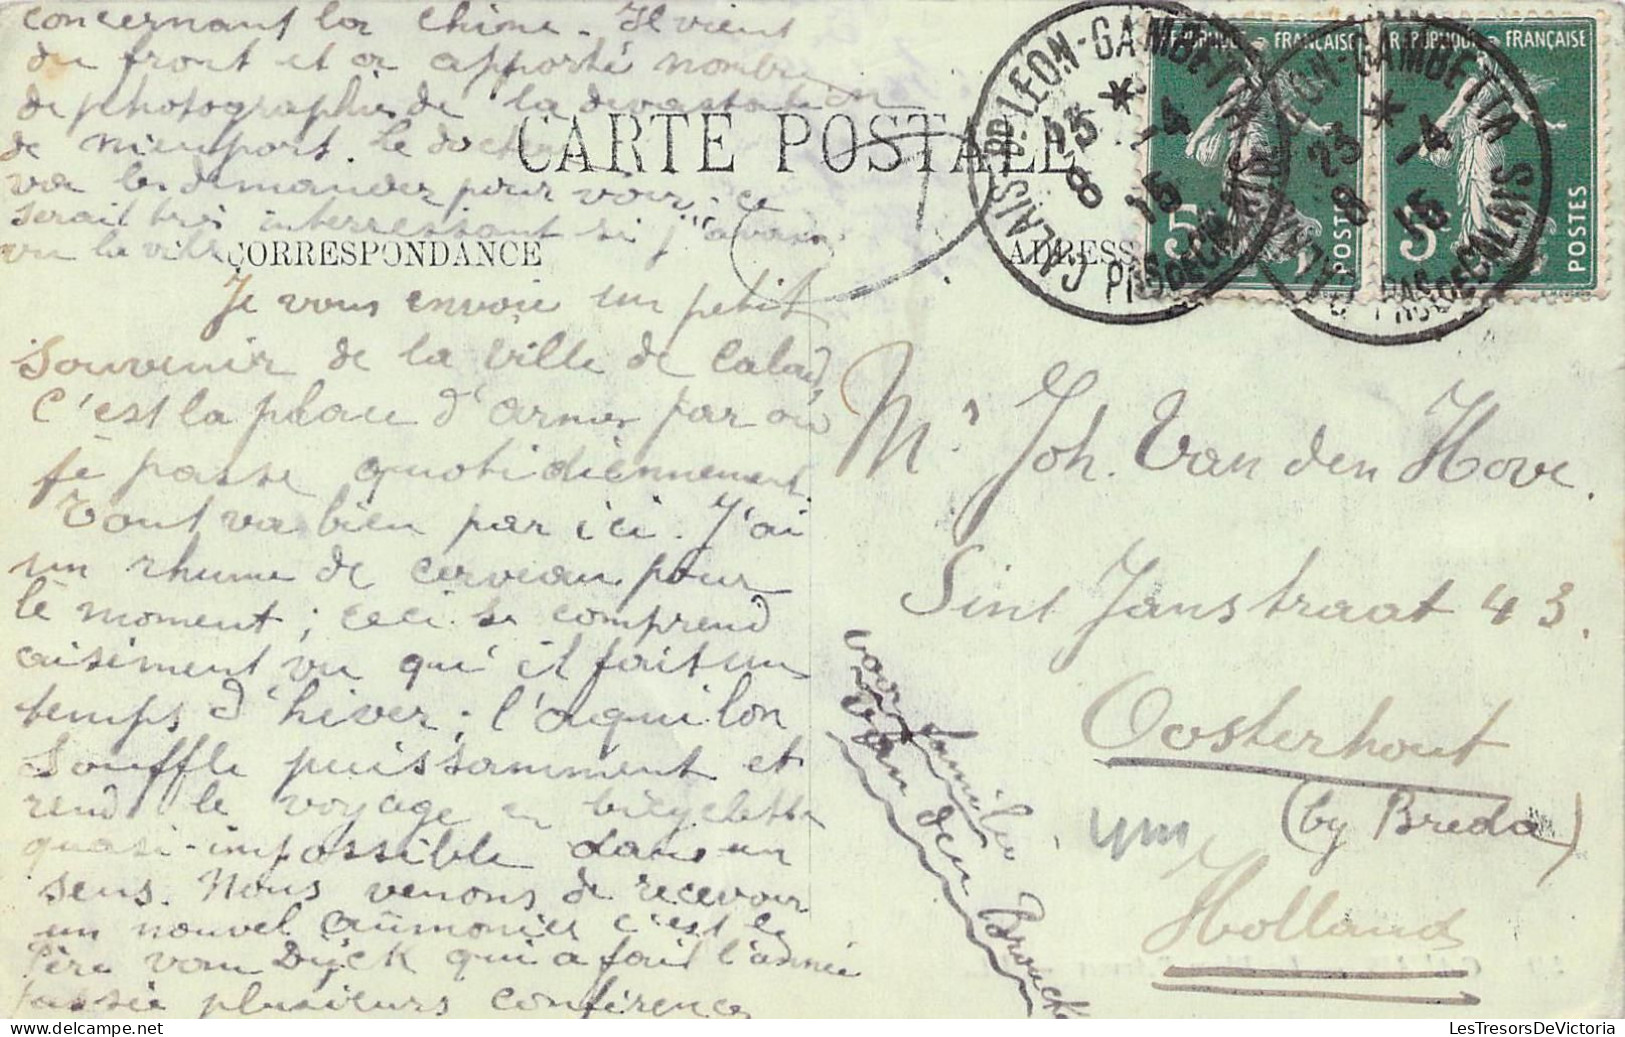 concernant la Chine. Il vient
du front et a apporté nombre
de photographies de la devastation
de Nieuport. Le docteur
va les demander pour voir. ce
serait très interressant si j'avais
vu la ville
CARTE POSTALE
CORRESPONDANCE
ADRESSE
Je vous envoie un petit
souvenir de la ville de Calais
C'est la place d'armes par où
je passe quotidiennement.
Tout va bien par ici. J'ai
un rhume de cerveau pour
le moment; ceci se comprend
aisément vu qu'il fait un
temps d'hiver; l'aquilon
souffle puissamment et
rend le voyage en bicyclette
quasi-impossible dans un
sens. Nous venons de recevoir
un nouvel aumonier c'est le
Père van Dijck qui a fait l'année
passée plusieurs conférences
CALAIS Pl. LEON-GAMBETTA
23 * -4
8 15
PAS DE CALAIS
CALAIS Pl. LEON-GAMBETTA
23 * -4
8 15
PAS DE CALAIS
REPUBLIQUE FRANÇAISE
5c
POSTES
REPUBLIQUE FRANÇAISE
5c
POSTES
Mr Joh. Van den Hove.
Sint Janstraat 43.
Oosterhout
(by Breda)
Holland
voor familie
Van den Brouck
LesTresorsDeVictoria